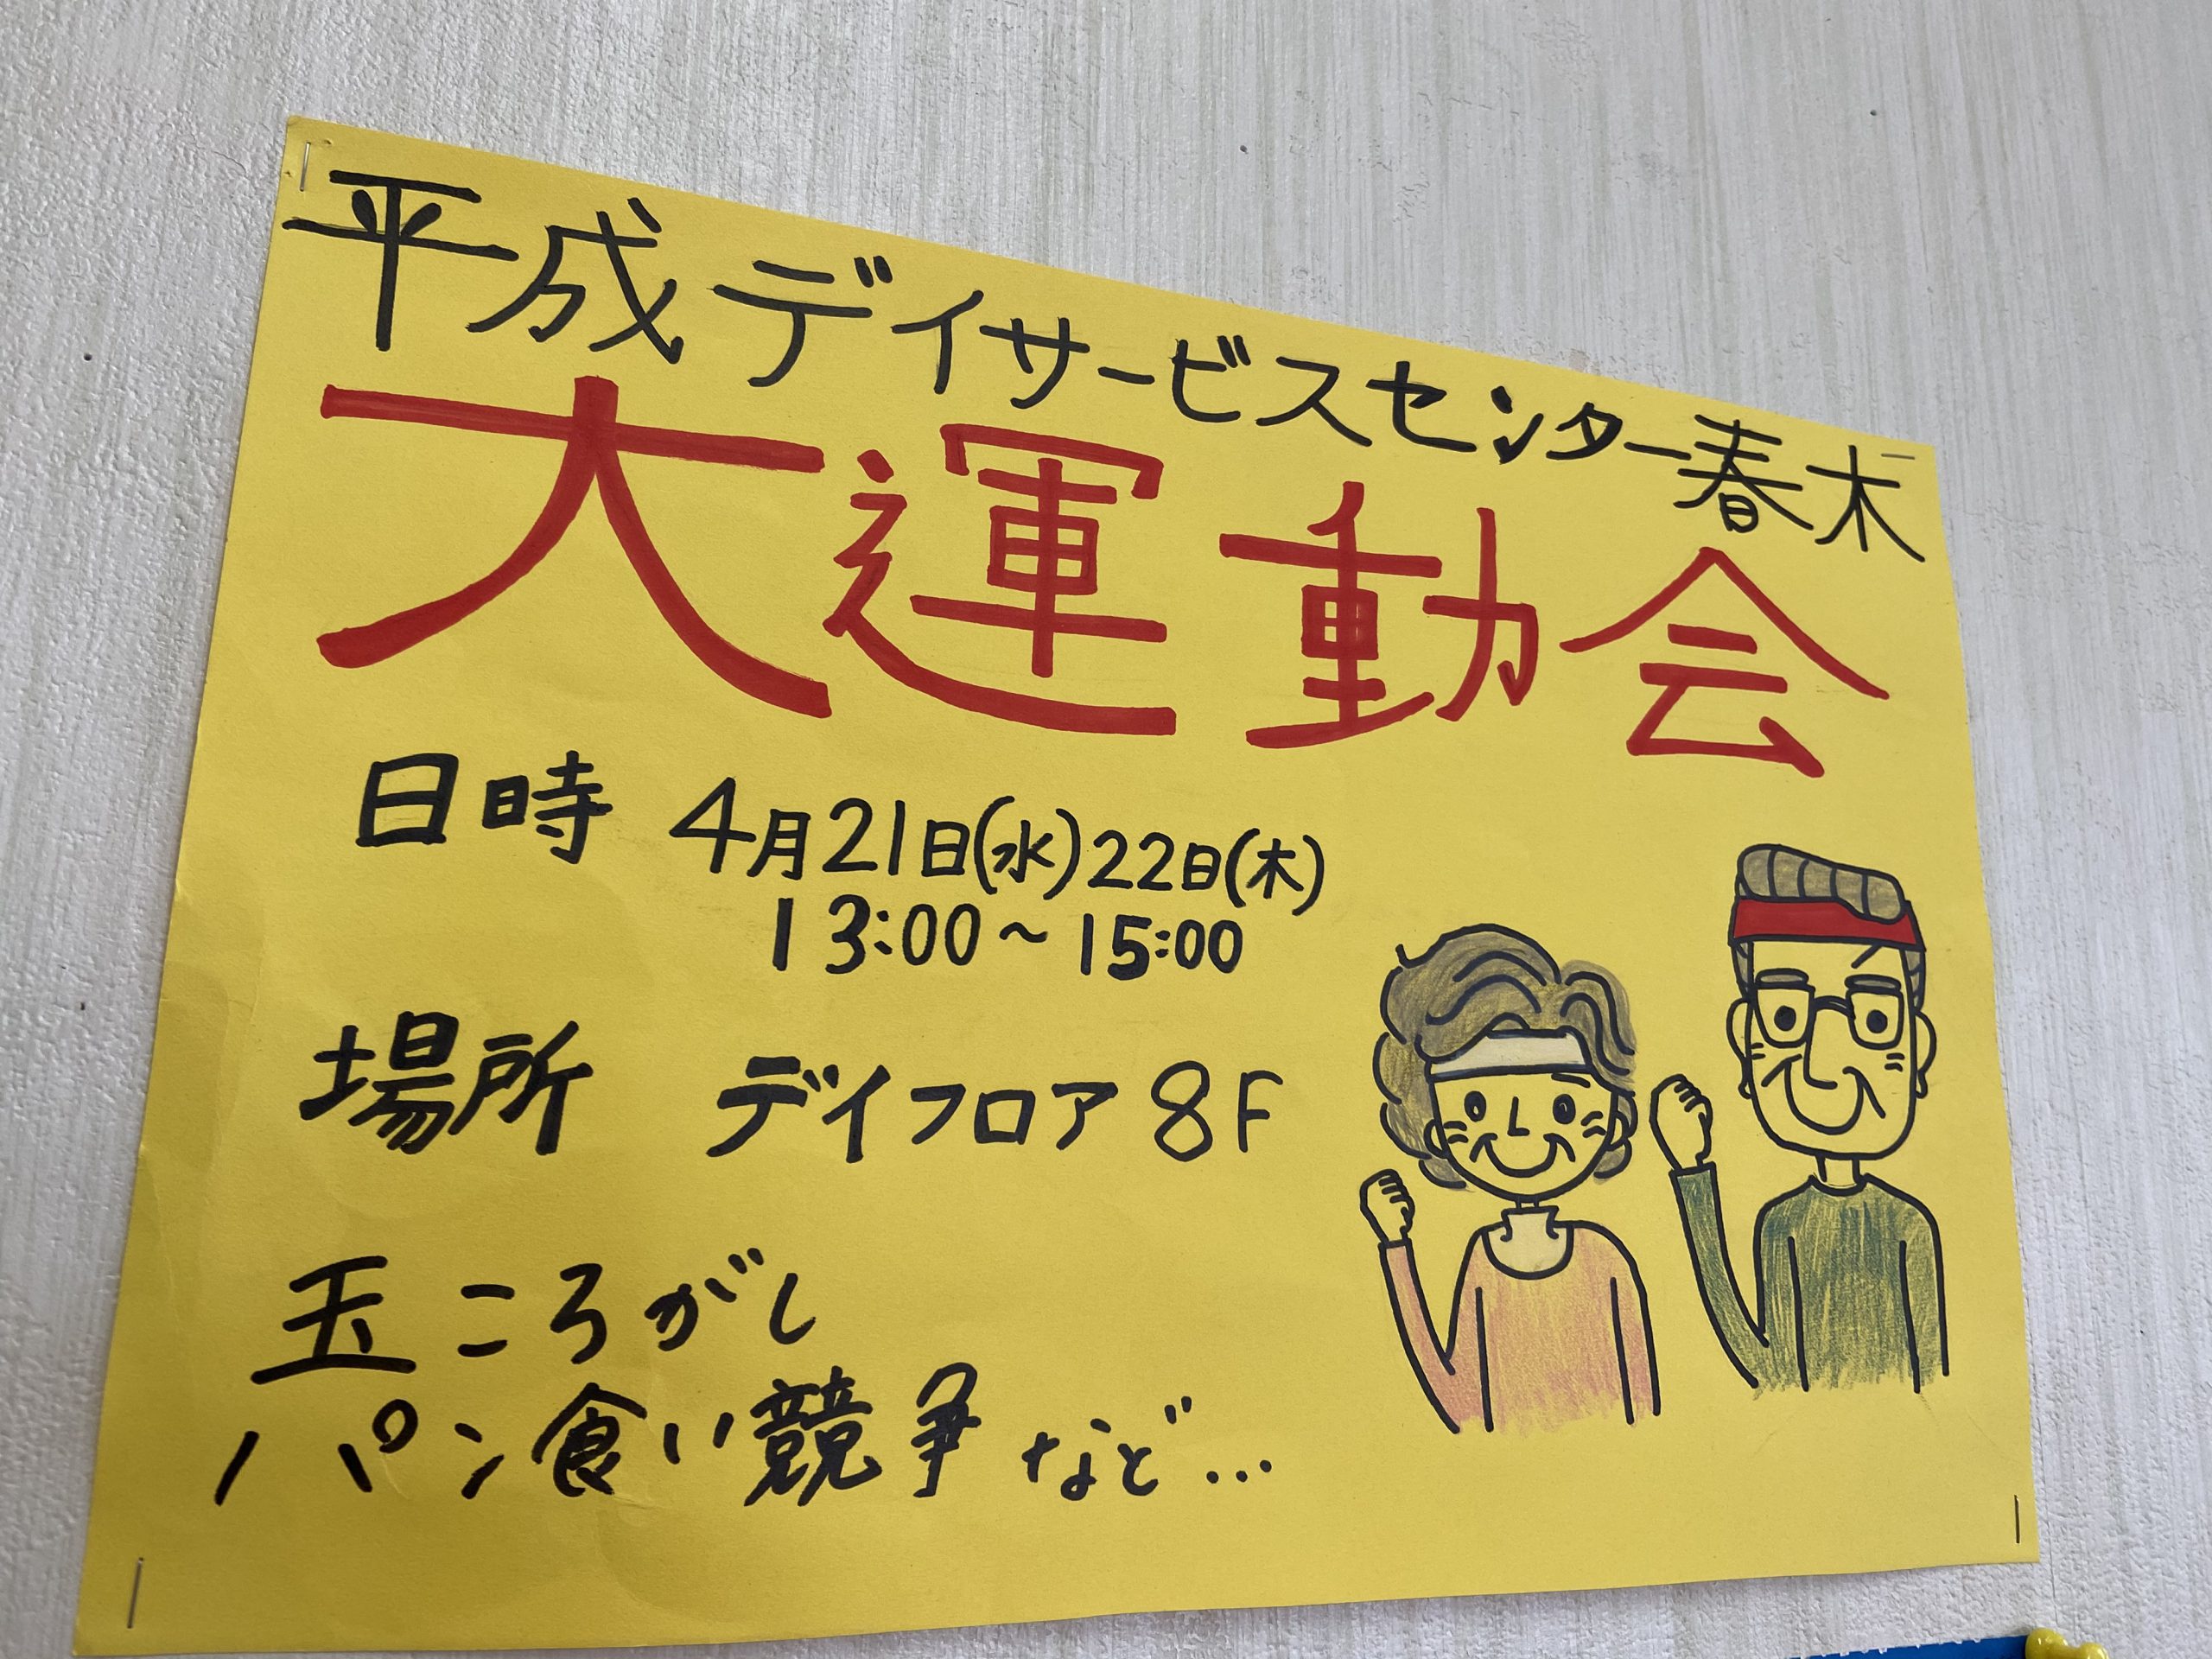 平成デイサービスセンター春木
大運動会
日時 4月21日(水)22日(木)
13:00～15:00
場所 デイフロア8F
玉ころがし
パン食い競争など…